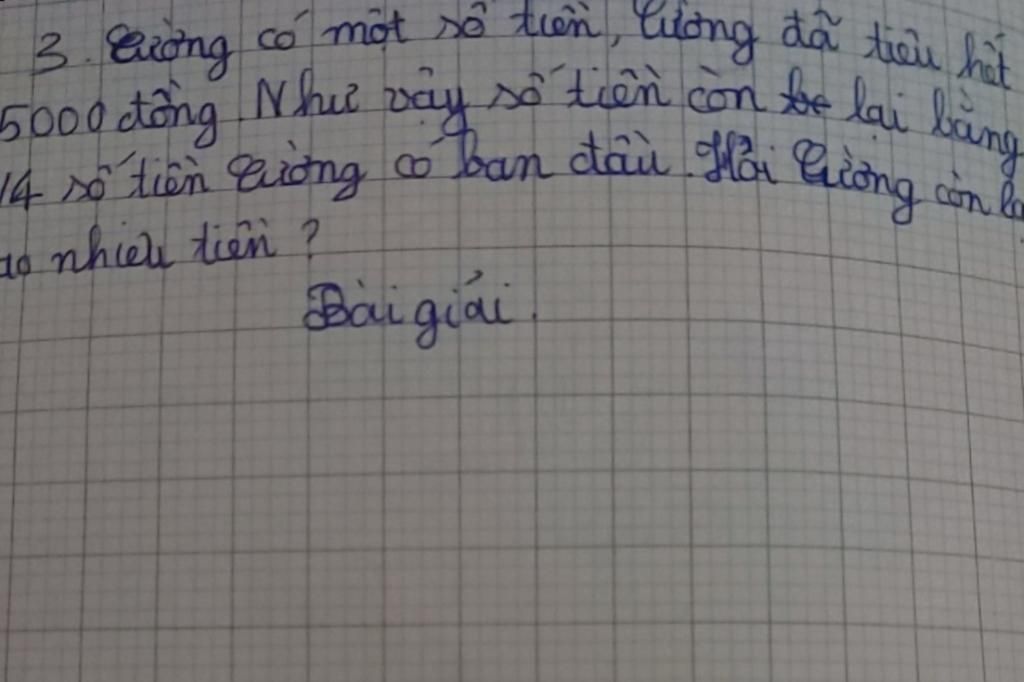 3. Cường có một số tiền, Cường đã tiêu hết
5000 đồng Như vậy số tiền còn lại bằng
14 số tiền Cường có ban đầu. Hỏi Cường còn
nhiêu tiền ?
Bài giải.